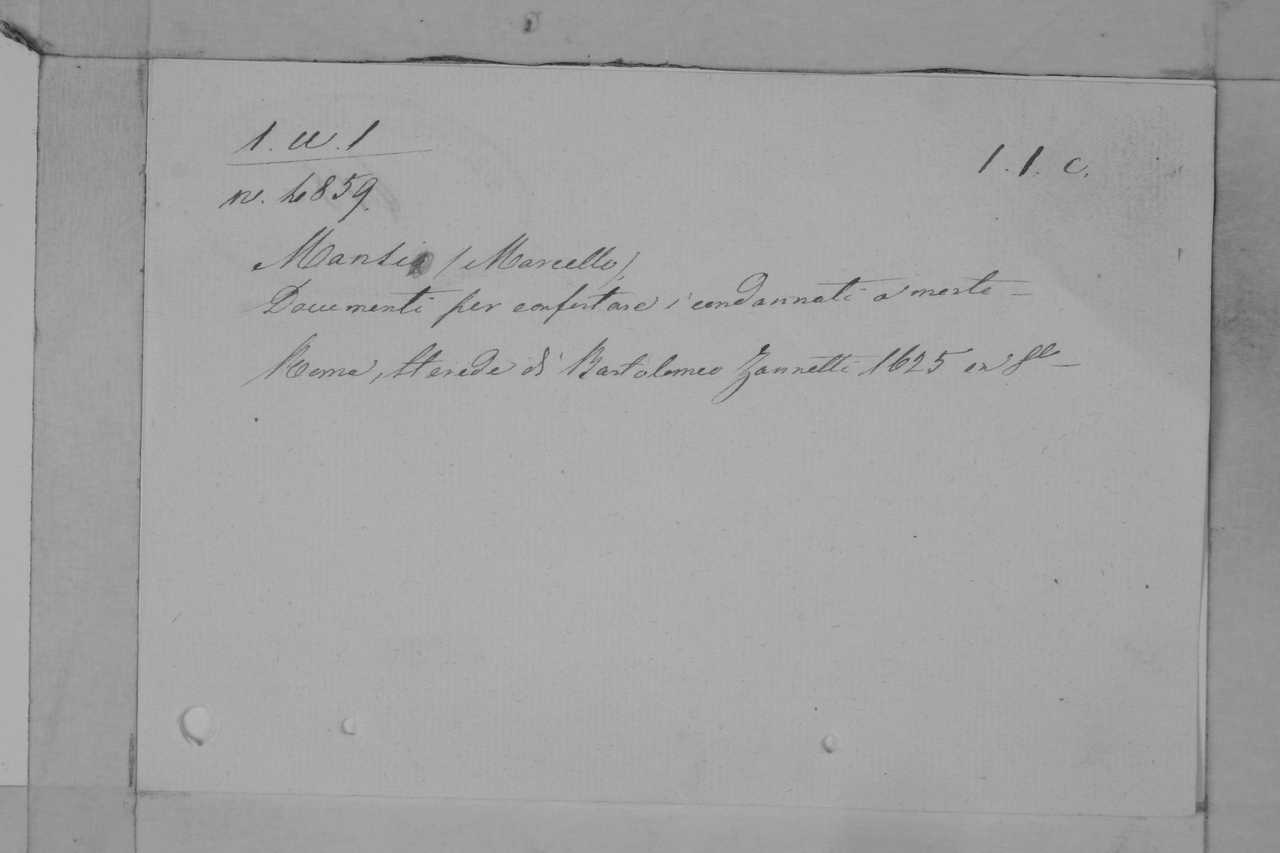 1. a. 1
1. 1. c.
n. 4859
Mansi (Marcello)
Documenti per confortare i condannati a morte –
Roma, Herede di Bartolomeo Zannetti 1625 in 8º –